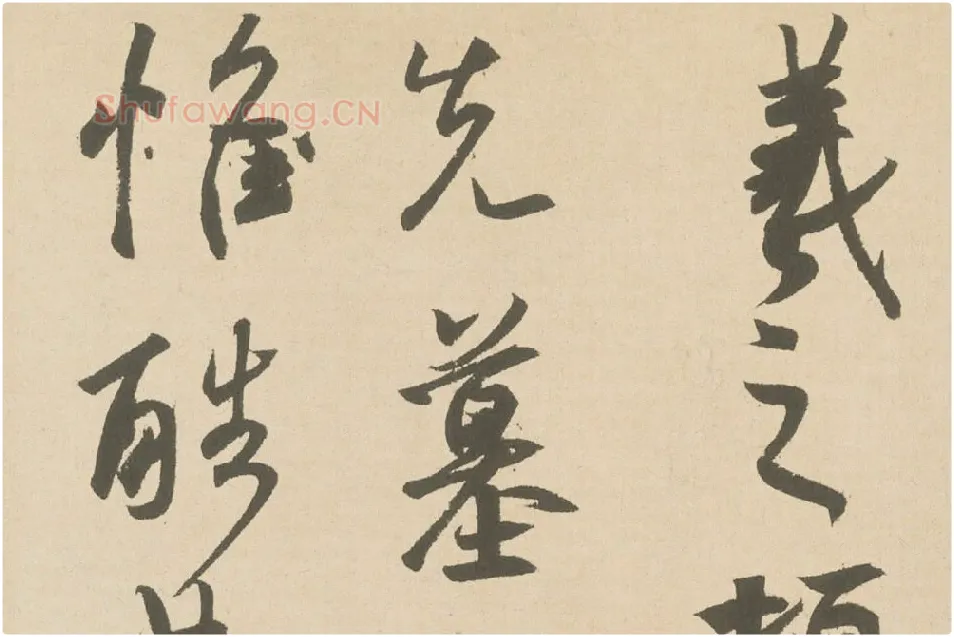 羲之頓
先墓
惟酷
Shufawang.CN